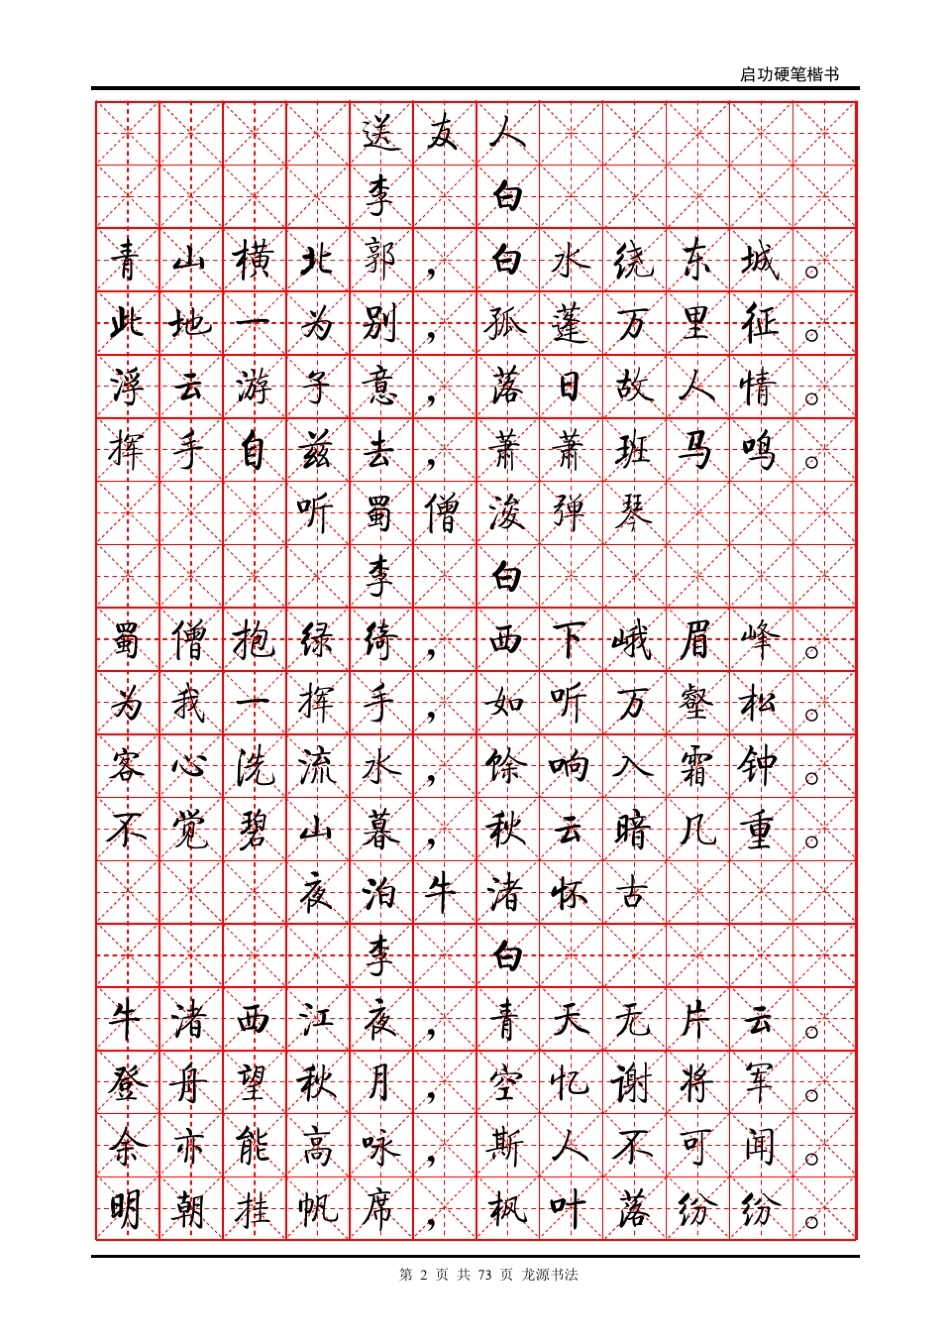 启功硬笔楷书
送友人
李 白
青山横北郭，白水绕东城。
此地一为别，孤蓬万里征。
浮云游子意，落日故人情。
挥手自兹去，萧萧班马鸣。
听蜀僧浚弹琴
李 白
蜀僧抱绿绮，西下峨眉峰。
为我一挥手，如听万壑松。
客心洗流水，馀响入霜钟。
不觉碧山暮，秋云暗几重。
夜泊牛渚怀古
李 白
牛渚西江夜，青天无片云。
登舟望秋月，空忆谢将军。
余亦能高咏，斯人不可闻。
明朝挂帆席，枫叶落纷纷。
第 2 页 共 73 页 龙源书法